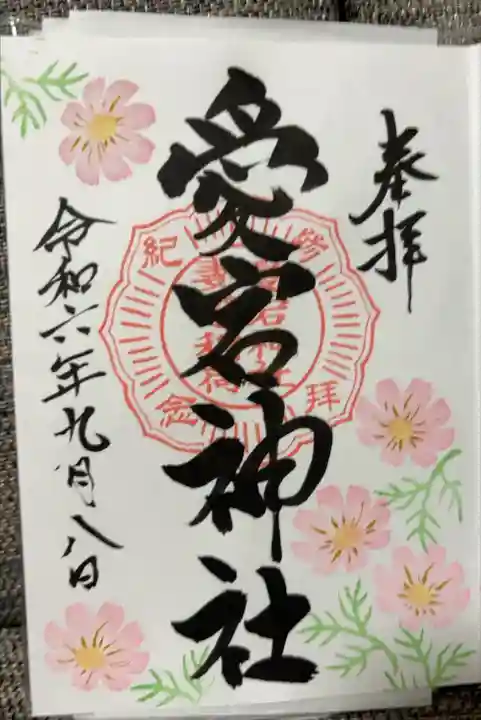 奉拝
愛宕神社
令和六年九月八日
參拝
紀念